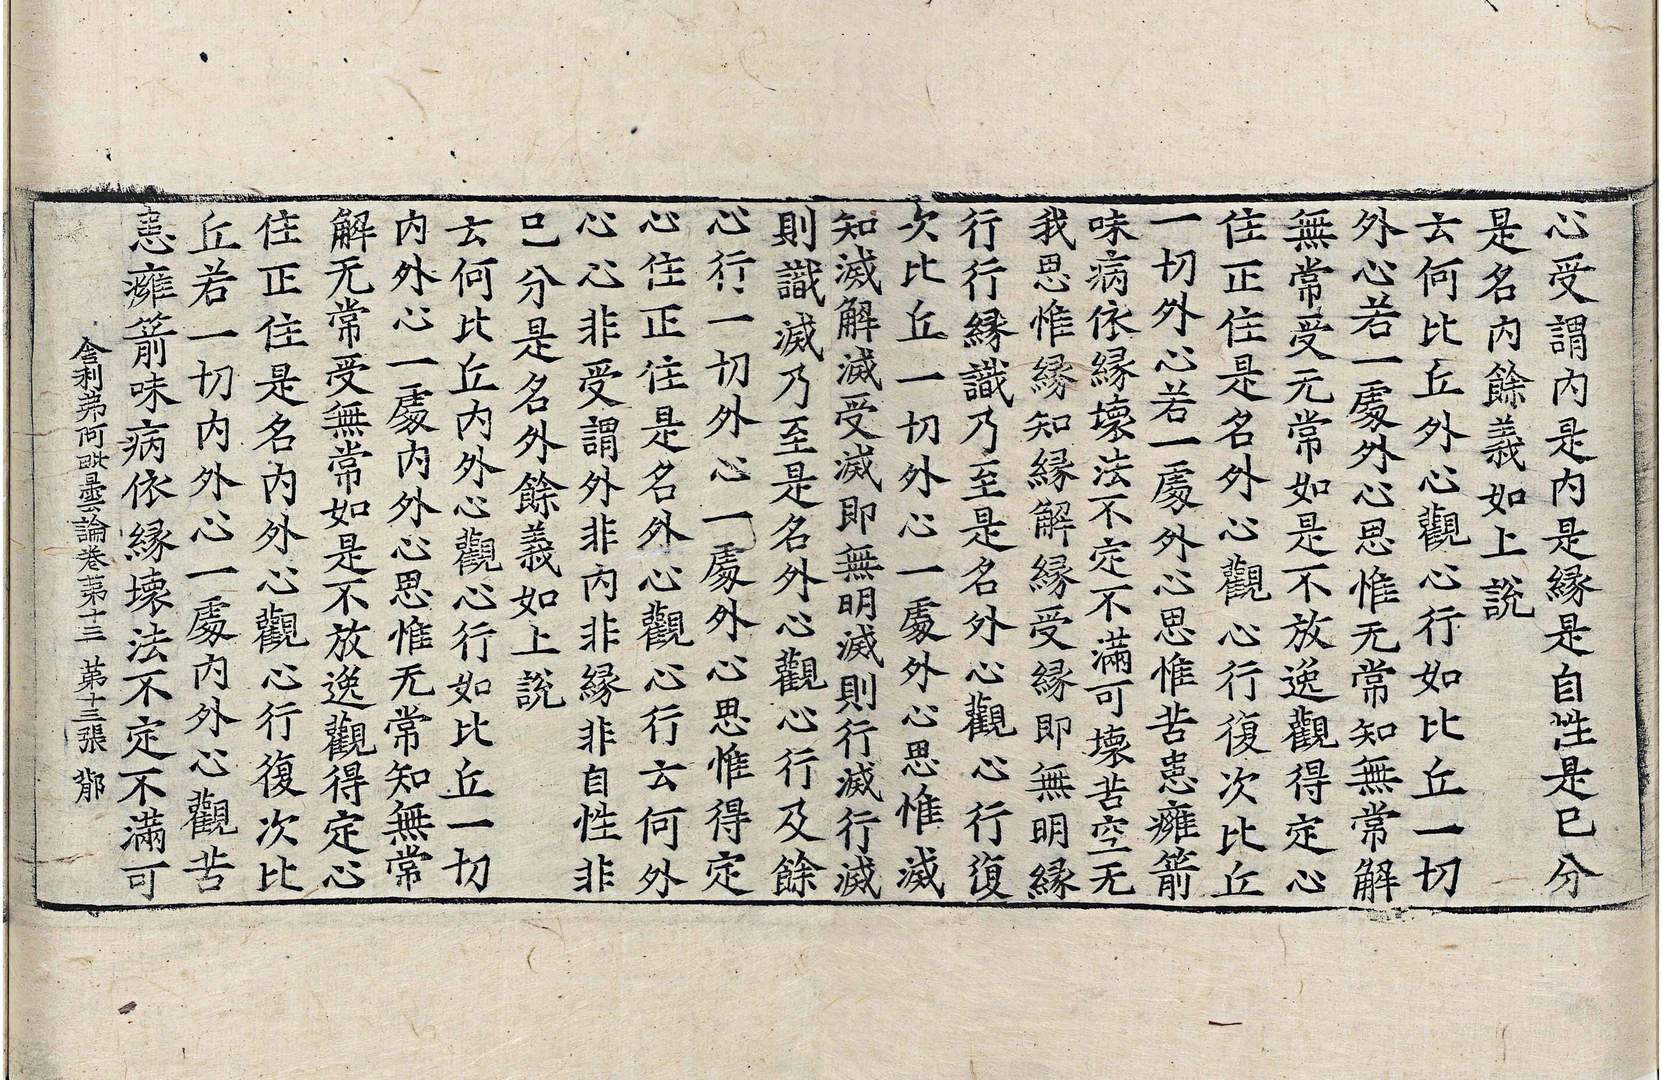 心受謂内是内是縁是自性是已分
是名内餘義如上說
云何比丘外心觀心行如比丘一切
外心若一處外心思惟无常知無常解
無常受无常如是不放逸觀得定心
住正住是名外心觀心行復次比丘
一切外心若一處外心思惟苦患癰箭
味病依縁壞法不定不滿可壞苦空无
我思惟縁知縁解縁受縁即無明縁
行行縁識乃至是名外心觀心行復
次比丘一切外心一處外心思惟滅
知滅解滅受滅即無明滅則行滅行滅
則識滅乃至是名外心觀心行及餘
心行一切外心一處外心思惟得定
心住正住是名外心觀心行云何外
心心非受謂外非内非縁非自性非
已分是名外餘義如上說
云何比丘内外心觀心行如比丘一切
内外心一處内外心思惟无常知無常
解无常受無常如是不放逸觀得定心
住正住是名内外心觀心行復次比
丘若一切内外心一處内外心觀苦
患癰箭味病依縁壞法不定不滿可
舍利弗阿毗曇論卷第十三 第十三張